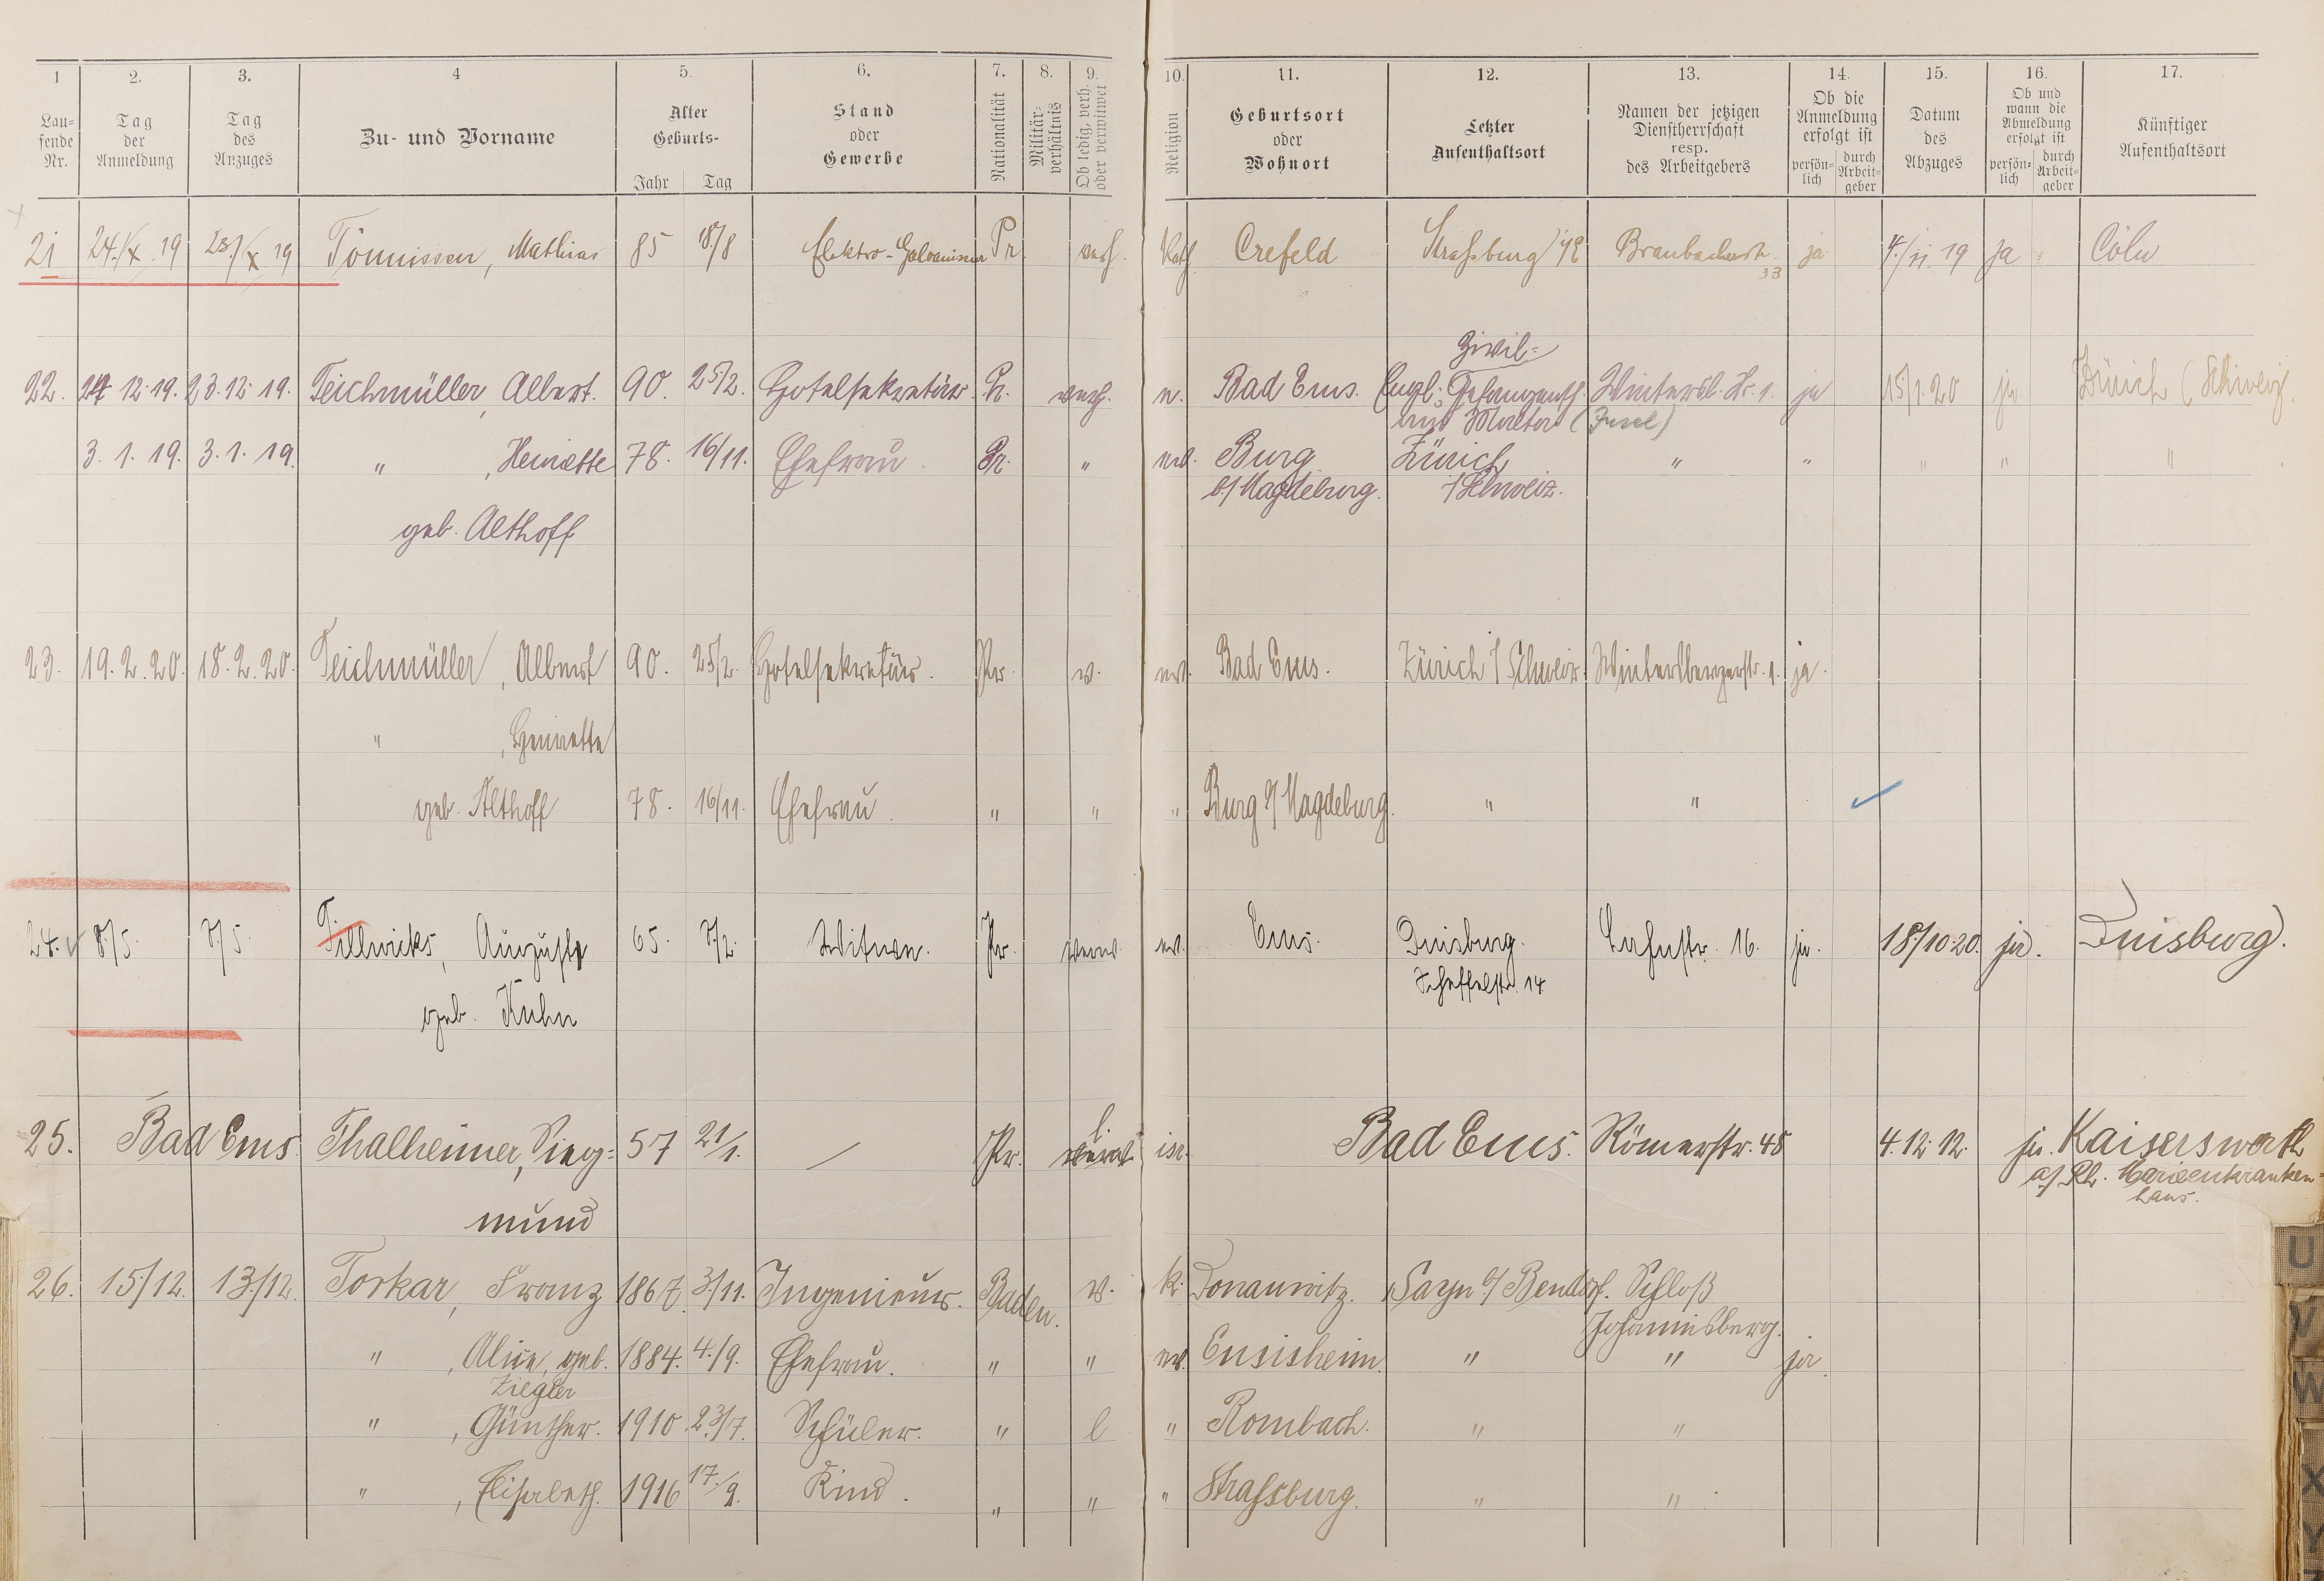 1 2. 3. 4 5. 6. 7. 8. 9. 10. 11. 12. 13. 14. 15. 16. 17.
Lau=
fende
Nr.
Tag
der
Anmeldung
Tag
des
Anzuges
Zu- und Vorname
Alter
Geburts-
Jahr Tag
Stand
oder
Gewerbe
Nationalität
Militär=
verhältnis
Ob ledig, verh.
oder verwitwet
Religion
Geburtsort
oder
Wohnort
Letzter
Aufenthaltsort
Namen der jetzigen
Dienstherrschaft
resp.
des Arbeitgebers
Ob die
Anmeldung
erfolgt ist
persön=
lich
durch
Arbeit=
geber
Datum
des
Abzuges
Ob und
wann die
Abmeldung
erfolgt ist
persön=
lich
durch
Arbeit=
geber
Künftiger
Aufenthaltsort
21 24./X. 19 23./X. 19 Tönnissen, Mathias 85 18./8 Elektro-Galvaniseur Pr. verh. Kath. Crefeld Straßburg i/E Braubacherstr. 33 ja 4./11. 19 ja Cöln
22. 24 12. 19. 23. 12. 19. Teichmüller, Albert. 90. 25/2. Hotelsekretär. Pr. verh. ev. Bad Ems. Engl. Zivil= Gefangensch. Wintersb. Str. 1. ja 15/1. 20 ja Zürich (Schweiz.
aus Malta (Insel)
3. 1. 19. 3. 1. 19. " , Henriette 78. 16/11. Ehefrau. Pr. " ev. Burg Zürich " " " " "
b/Magdeburg. /Schweiz.
geb. Althoff
23. 19. 2. 20. 18. 2. 20. Teichmüller, Albert 90. 25/2. Hotelsekretär. Pr. v. ev. Bad Ems. Zürich /Schweiz. Wintersbergerstr. 1. ja.
" , Henriette
geb. Althoff 78. 16/11. Ehefrau. " " " Burg b/Magdeburg. " "
24. 8./5. 7/5. Tillwicks, Auguste 65. 7/2. Witwe. Pr. verw. ev. Ems. Duisburg. Lahnstr. 16. ja. 18/10 20. ja. Duisburg.
Scheffelstr. 14
geb. Kuhn
25. Bad Ems. Thalheimer, Sieg= 57 21/1. / Pr. l. isr. Bad Ems. Römerstr. 48 4. 12. 12. ja. Kaiserswerth
a/Rh. Marienkranken=
haus.
mund
26. 15./12. 13./12. Torkar, Franz 1867. 3./11. Ingenieur. Baden. v. k. Donauwitz. Sayn b/Bendorf. Schloß
Johannisberg.
" , Alice, geb. 1884. 4./9. Ehefrau. " " ev. Ensisheim. " " ja.
Ziegler
" , Günther. 1910. 23/7. Schüler. " l " Rombach. " "
" , Elisabeth. 1916 17./9. Kind. " " " Straßburg. " "
U
V
W
X
Y